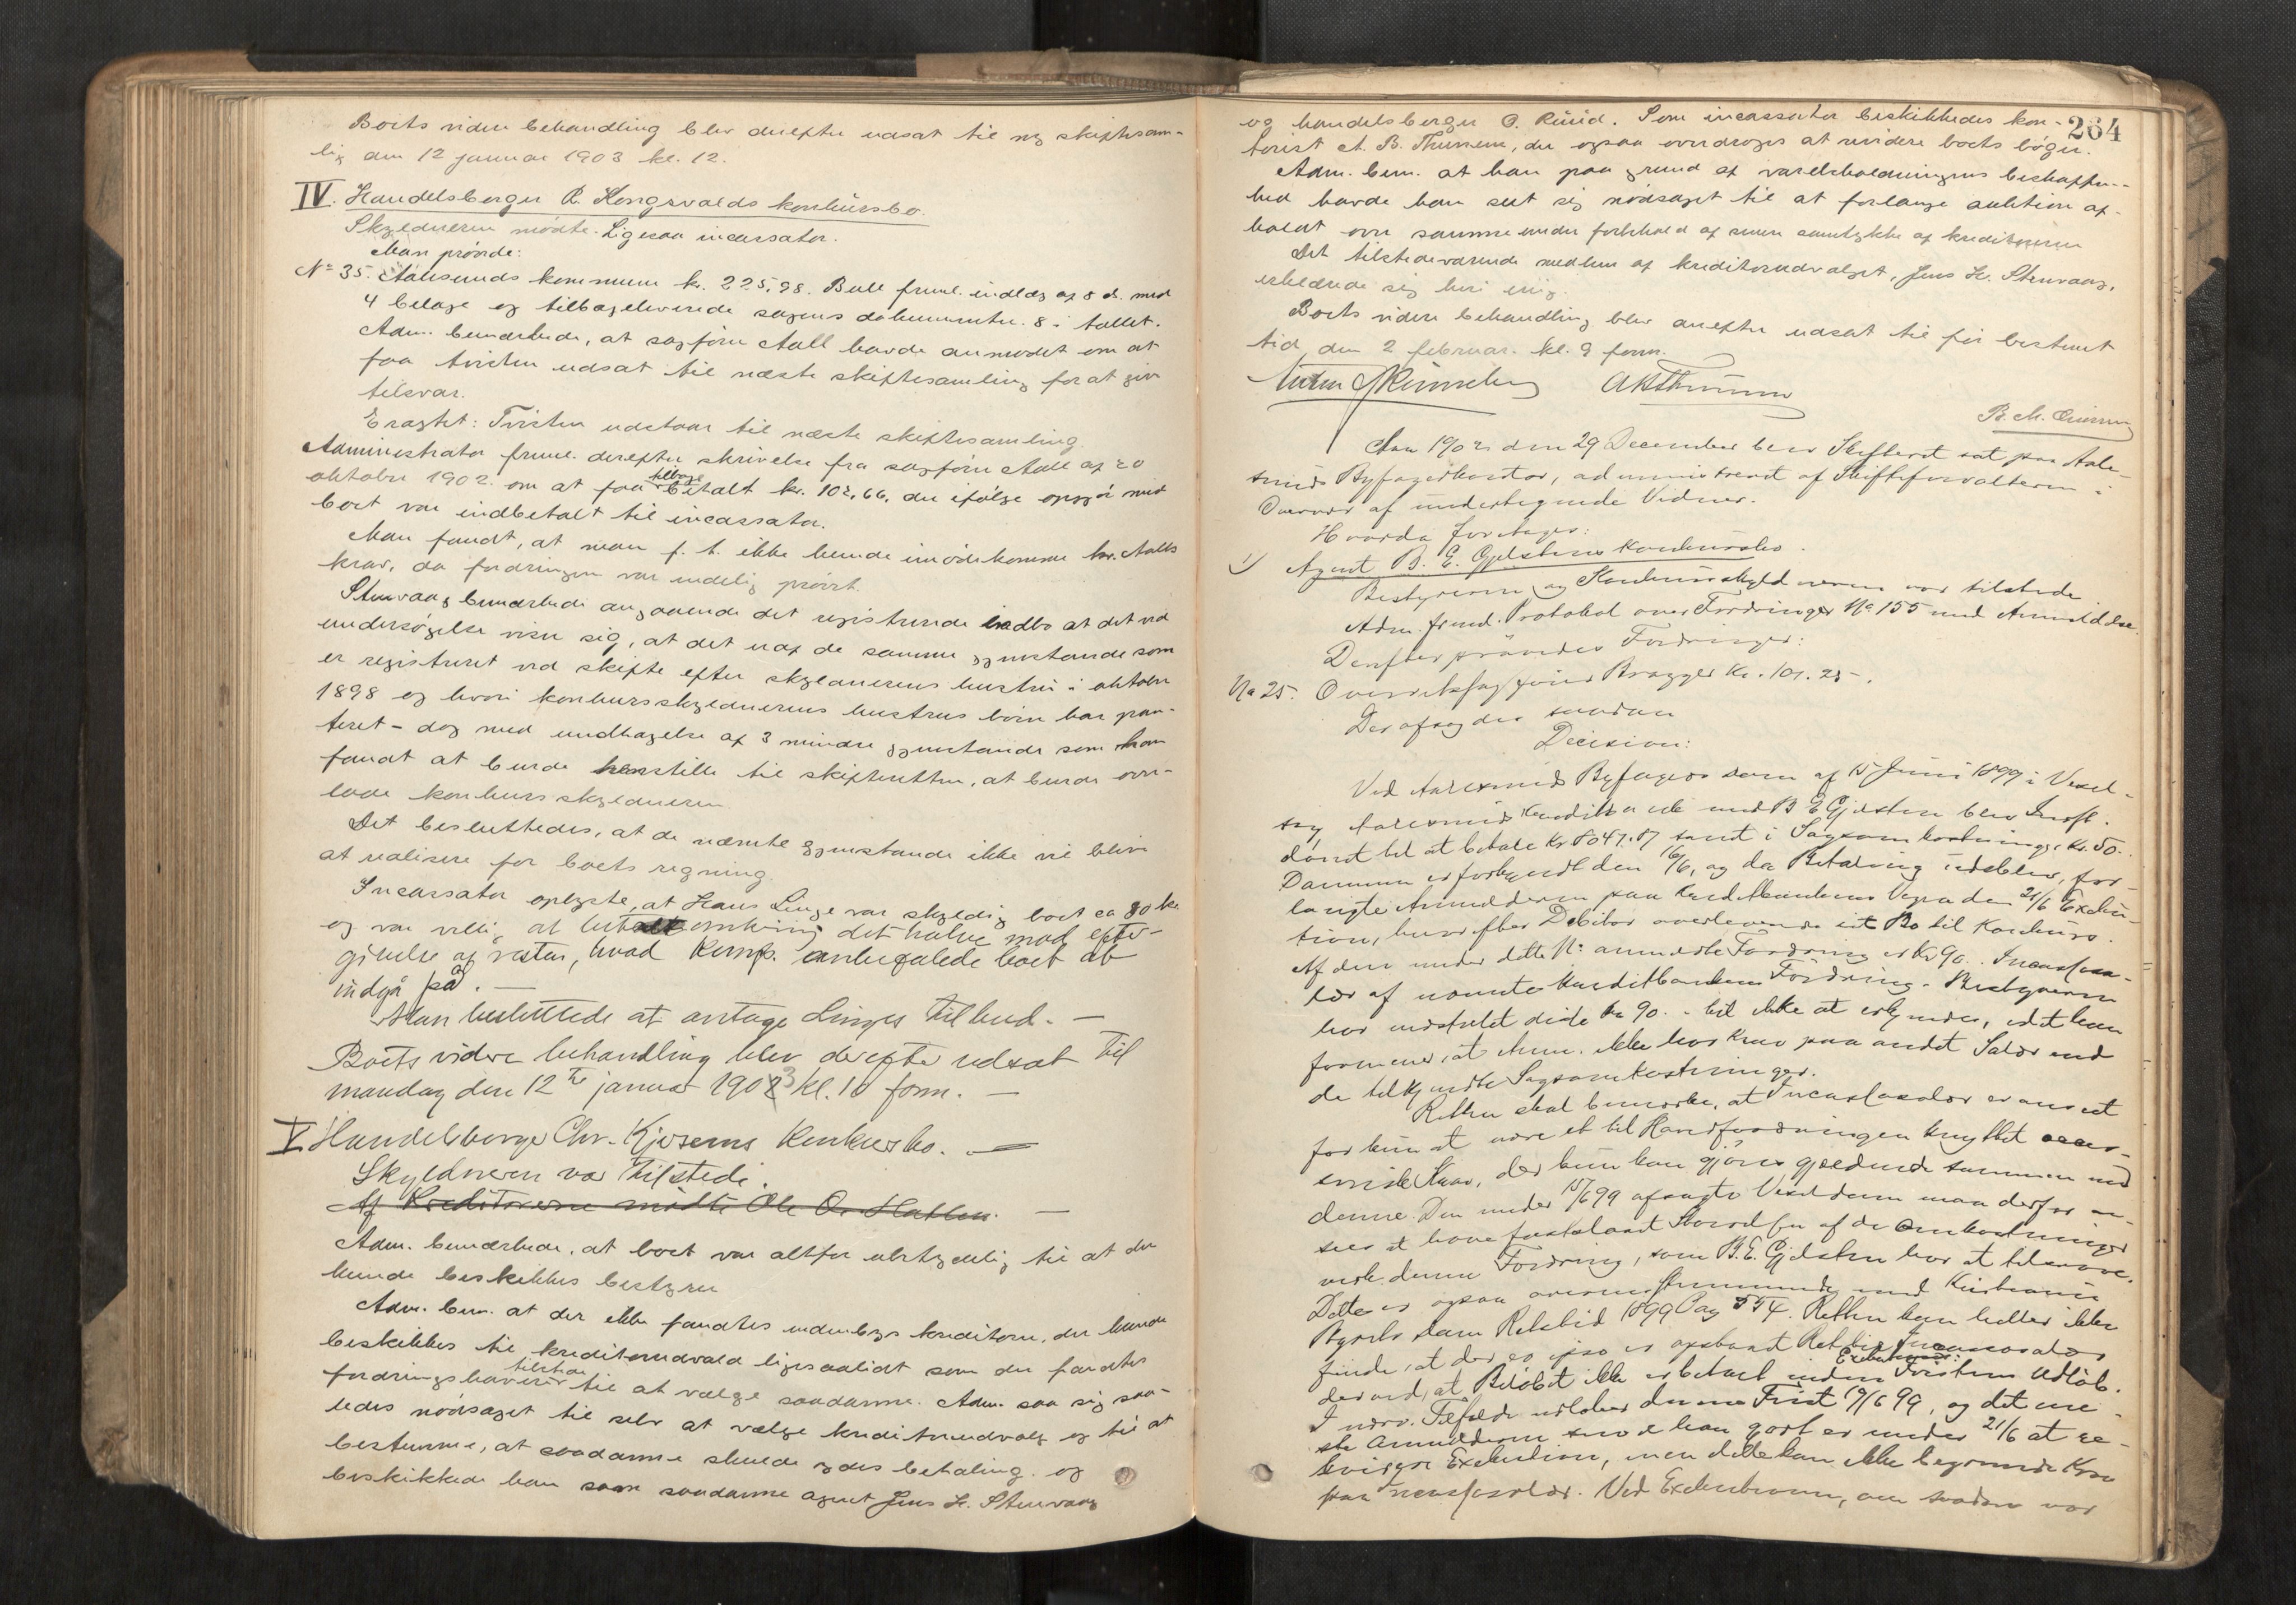 Boets videre behandling blev derefter udsat til ny skiftesam-
lig den 12 januar 1903 kl. 12.
IV. Handelsborger R. Kongsvolds konkursbo.
Skyldneren mødte. Ligesaa incassator.
Man prøvde:
No 35. Aalesunds kommune kr. 225,98. Bull freml. indlæg af 8 ds. med
4 bilage og tilbageleverede sagens dokumenter. 8 i tallet.
Adm. bemærkede, at sagfører Aall havde anmodet om at
faa tvisten udsat til næste skiftesamling for at give
tilsvar.
Eragtet: Tvisten udstaar til næste skiftesamling.
Administrator freml. derefter skrivelse fra sagfører Aall af 20
oktober 1902 om at faa tilbage betalt kr. 102,66, der ifølge opgjør med
boet var indbetalt til incassator.
Man fandt, at man f. t. ikke kunde imødekomme hr. Aalls
krav, da fordringen var endelig prøvet.
Stenvaag bemærkede angaaende det registrerede indbo at det ved
undersøgelse viser sig, at det er af de samme gjenstande som
er registreret ved skifte efter skyldnerens hustru i oktober
1898 og hvori konkursskyldnerens hustrus børn har pan-
teret - dog med undtagelse af 3 mindre gjenstande som han
fandt at burde henstille til skifteretten, at burde over-
lade konkursskyldneren.
Det besluttedes, at de nævnte gjenstande ikke vil blive
at realisere for boets regning.
Incassator oplyste, at Hans Linge var skyldig boet ca 80 kr.
og var villig at betale omkring det halve mod efter-
givelse af resten, hvad Komp. anbefalede boet at
indgå på. —
Man besluttede at antage Linges tilbud. —
Boets videre behandling blev derefter udsat til
mandag den 12te januar 1903 kl. 10 form. —
V. Handelsborger Chr. Kjøsens Konkursbo. —
Skyldneren var tilstede.
Af Kreditorerne mødte Ole O. Hatlen. —
Adm. bemærkede, at boet var altfor ubetydelig til at der
kunde beskikkes bestyrer
Adm. bem. at der ikke fandtes indenbys kreditorer, der kunde
beskikkes til kreditorudvalg ligesaalidt som der fandtes
fordringshavere tilstede til at vælge saadanne. Adm. saa sig saa-
ledes nødsaget til selv at vælge kreditorudvalg og til at
bestemme, at saadanne skulde ydes betaling. og
beskikkede han som saadanne agent Jens K. Stenvaag
264
og handelsborger O. Ruud. Som incassator beskikkedes kon-
torist A. B. Thunem, der ogsaa overdroges at revidere boets bøger.
Adm. bem. at han paa grund af varebeholdningens beskaffen-
hed havde han set sig nødsaget til at forlange auktion af-
holdt over samme under forbehold af senere samtykke af kreditorerne
Det tilstedeværende medlem af kreditorudvalget, Jens K. Stenvaag,
erklærede sig heri enig.
Boets videre behandling blev derefter udsat til før bestemt
tid den 2 februar. kl. 9 form.
AB Thunem
Aar 1902 den 29 December blev Skifteret sat paa Aale-
sunds Byfogedkontor, administreret af Skifteforvalteren i
Overvær af undertegnede Vidner.
Hvorda foretages:
1) Agent B. E. Gjelstens Konkursbo.
Bestyreren og Konkursskyldneren var tilstede
Adm. freml. Protokol over Fordringer No 155 med Anmeldelse.
Derefter prøvedes Fordringer:
No 25. Overretssagfører Brøgger Kr. 101.25.
Der afsagdes saadan
Decision:
Ved Aalesunds Byfogeds dom af 15 Juni 1899 i Vexel-
sag Aalesunds Kreditbank mod B E Gjelsten blev Indst.
dømt til at betale Kr 8047.87 samt i Sagsomkostninger Kr. 50.
Dommen er forkyndt den 16/6, og da Betaling udeblev, for-
langte Anmelderen paa Kreditbankens Vegne den 21/6 Exeku-
tion, hvorefter Debitor overleverede sit Bo til Konkurs.
Af den under dette No anmeldte Fordring er Kr 90. Incassosa-
lær af nævnte Kreditbankens Fordring. Bestyreren
har indstillet disse Kr 90. - til ikke at erkjendes, idet han
formener, at Anm. ikke har Krav paa andet Salær end
de tilkjendte Sagsomkostninger.
Retten skal bemærke, at Incassosalær er anseet
for kun at være et til Hovedfordringen knyttet acces-
sorisk Krav, der kun kan gjøres gjældende sammen med
denne. Den under 15/6 99 afsagte Vexeldom maa derfor an-
sees at have fastslaaet Størrelsen af de Omkostninger
vedk. denne Fordring, som B. E. Gjelsten har at tilsvare.
Dette er ogsaa overensstemmende med Kristiania
Byrets dom Retstid 1899 Pag 554. Retten kan heller ikke
finde, at der eo ipso er opstaaet Ret til Incassosalær
derved, at Beløbet ikke er betalt inden Fristens Udløb.
I nærv. Tilfælde udløber denne Frist 19/6 99, og det ene-
ste Anmelderen sees at have gjort er under 21/6 at be-
gjære Exekution, men dette kan ikke begrunde Krav
paa Incassosalær. Ved Exekutionen, om saadan var